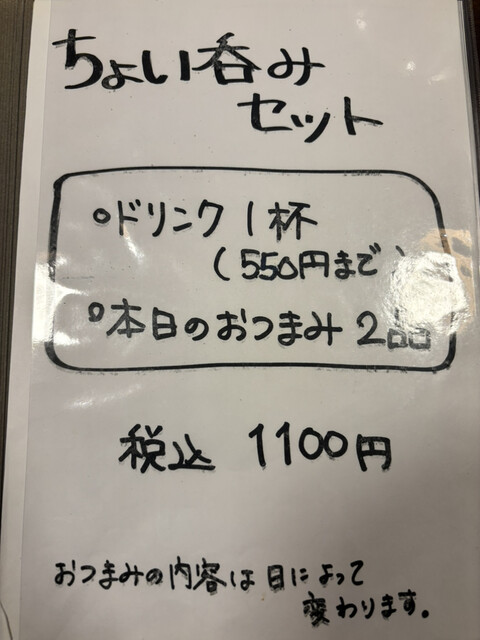 ちょい呑み
セット
ドリンク1杯
(550円まで)
本日のおつまみ 2品
税込 1100円
おつまみの内容は日によって
変わります。